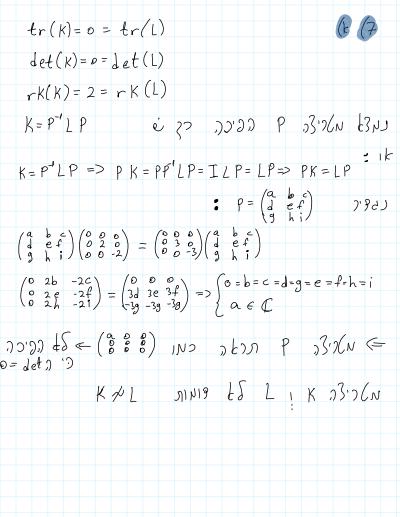 7) א)
tr(K)=0=tr(L)
det(K)=0=det(L)
rk(K)=2=rk(L)
נמצא מטריצה P הפיכה כך ש K=P⁻¹LP
אז:
K=P⁻¹LP => PK=PP⁻¹LP=ILP=LP => PK=LP
נגדיר P=(a b c / d e f / g h i) :
(a b c / d e f / g h i)(0 0 0 / 0 2 0 / 0 0 -2) = (0 0 0 / 0 3 0 / 0 0 -3)(a b c / d e f / g h i)
(0 2b -2c / 0 2e -2f / 0 2h -2i) = (0 0 0 / 3d 3e 3f / -3g -3h -3g) => { 0=b=c=d=g=e=f=h=i
a∈ℂ
<= מטריצה P תראה כמו (a 0 0 / 0 0 0 / 0 0 0) <- לא הפיכה
כי det=0
מטריצה K ו L לא דומות K≁L